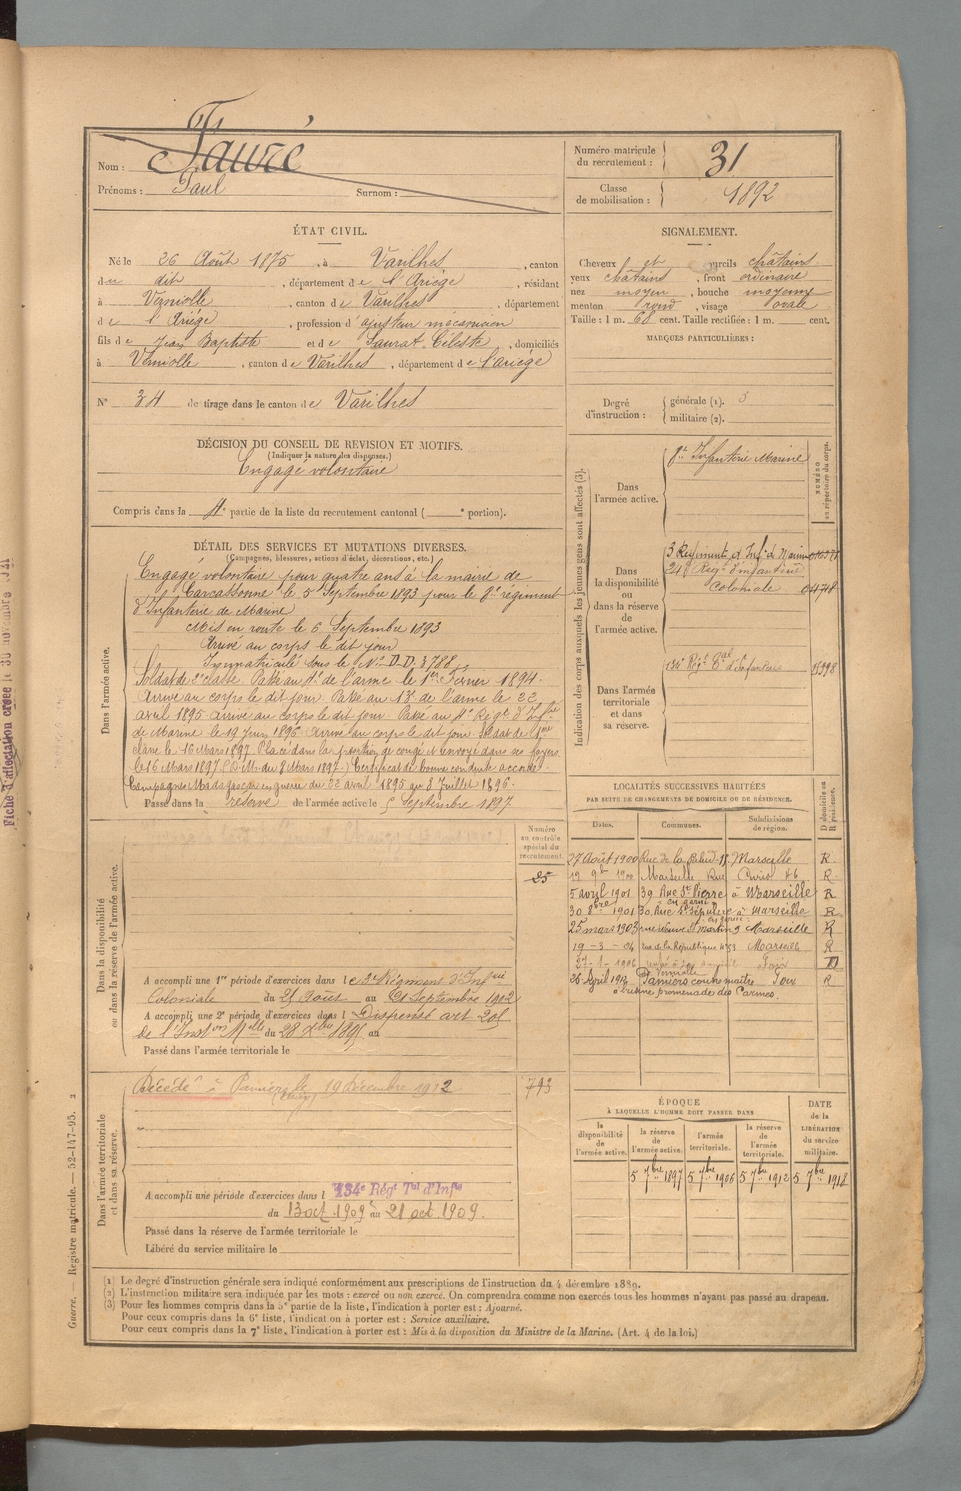 Nom : Fauré
Prénoms : Paul Surnom :
Numéro matricule du recrutement : 31
Classe de mobilisation : 1892
ÉTAT CIVIL.
Né le 26 Août 1875, à Varilhes, canton
du dit, département de l'Ariège, résidant
à Verniolle, canton de Varilhes, département
de l'Ariége, profession d'ajusteur mécanicien
fils de Jean Baptiste et de Saurat Céleste, domiciliés
à Verniolle, canton de Varilhes, département de l'ariège
N° 34 de tirage dans le canton de Varilhes
DÉCISION DU CONSEIL DE REVISION ET MOTIFS.
(Indiquer la nature des dispenses.)
Engagé volontaire
Compris dans la 4e partie de la liste du recrutement cantonal ( e portion).
SIGNALEMENT.
Cheveux et sourcils châtains
yeux châtains, front ordinaire
nez moyen, bouche moyenne
menton rond, visage ovale
Taille : 1 m. 68 cent. Taille rectifiée : 1 m. cent.
MARQUES PARTICULIÈRES :
Degré d'instruction : générale (1). 3
militaire (2).
DÉTAIL DES SERVICES ET MUTATIONS DIVERSES.
(Campagnes, blessures, actions d'éclat, décorations, etc.)
Dans l'armée active.
Engagé volontaire pour quatre ans à la mairie de
Carcassonne le 5 Septembre 1893 pour le 8e régiment
d'Infanterie de Marine
Mis en route le 6 Septembre 1893
Arrivé au corps le dit jour
Immatriculé sous le N° D.D. 3788
Soldat de 2e classe. Passé au 4e de l'arme le 1er Février 1894.
Arrivé au corps le dit jour. Passé au 13e de l'arme le 22
avril 1895 arrivé au corps le dit jour. Passé au 4e Régt d'Infie
de Marine le 19 Juin 1896 arrivé au corps le dit jour. Soldat de 1ere
classe le 16 Mars 1897. Placé dans la position de congé et envoyé dans ses foyers
le 16 Mars 1897 (D.M. du 8 Mars 1897.) Certificat de bonne conduite accordé.
Campagne Madagascar en guerre du 22 avril 1895 au 8 Juillet 1896.
Passé dans la réserve de l'armée active le 5 Septembre 1897
Indication des corps auxquels les jeunes gens sont affectés (3).
NUMÉRO au répertoire du corps.
Dans l'armée active.
8e Infanterie Marine
Dans la disponibilité ou dans la réserve de l'armée active.
3 Régiment d'Inf. de Marine
24e Regt Infanterie
Coloniale
Dans l'armée territoriale et dans sa réserve.
134e Régt Tal d'Infanterie
LOCALITÉS SUCCESSIVES HABITÉES
PAR SUITE DE CHANGEMENTS DE DOMICILE OU DE RÉSIDENCE.
Dates. Communes. Subdivisions de région. D domicile ou R résidence.
27 Août 1900 Rue de la Marseille R
19 9bre 1900 Marseille Rue 46 R
5 avril 1901 39 Rue St Pierre à Marseille R
30 8bre 1901 30 Rue St Sépulcre à Marseille R
en garni
25 mars 1903 rue neuve St martin 9 Marseille R
19-3-04 rue de la République n° 53 Marseille R
27-1-1906 Foix D
Verniolle
26 Avril 1912 Pamiers contremaître Foix R
à l'usine promenade des Carmes.
Dans la disponibilité ou dans la réserve de l'armée active.
Numéro au contrôle spécial du recrutement.
25
A accompli une 1re période d'exercices dans le 2e Régiment d'Infrie
Coloniale du 25 Août au 21 Septembre 1902
A accompli une 2e période d'exercices dans l Dispensé art 201
de l'Inston Mlle du 28 Xbre 1895 au
Passé dans l'armée territoriale le
Dans l'armée territoriale et dans sa réserve.
Décédé à Pamiers le 19 Décembre 1912
(Ariège)
793
A accompli une période d'exercices dans l 134e Régt Tal d'Infie
du 13 oct 1909 au 21 oct 1909.
Passé dans la réserve de l'armée territoriale le
Libéré du service militaire le
ÉPOQUE
À LAQUELLE L'HOMME DOIT PASSER DANS
DATE de la LIBÉRATION du service militaire.
la disponibilité de l'armée active. la réserve de l'armée active. l'armée territoriale. la réserve de l'armée territoriale.
5 7bre 1897 5 7bre 1906 5 7bre 1912 5 7bre 1918
(1) Le degré d'instruction générale sera indiqué conformément aux prescriptions de l'instruction du 4 décembre 1889.
(2) L'instruction militaire sera indiquée par les mots : exercé ou non exercé. On comprendra comme non exercés tous les hommes n'ayant pas passé au drapeau.
(3) Pour les hommes compris dans la 5e partie de la liste, l'indication à porter est : Ajourné.
Pour ceux compris dans la 6e liste, l'indication à porter est : Service auxiliaire.
Pour ceux compris dans la 7e liste, l'indication à porter est : Mis à la disposition du Ministre de la Marine. (Art. 4 de la loi.)
Guerre. — Registre matricule. — 52-147-95. 2
Fiche d'affectation créée le 30 novembre